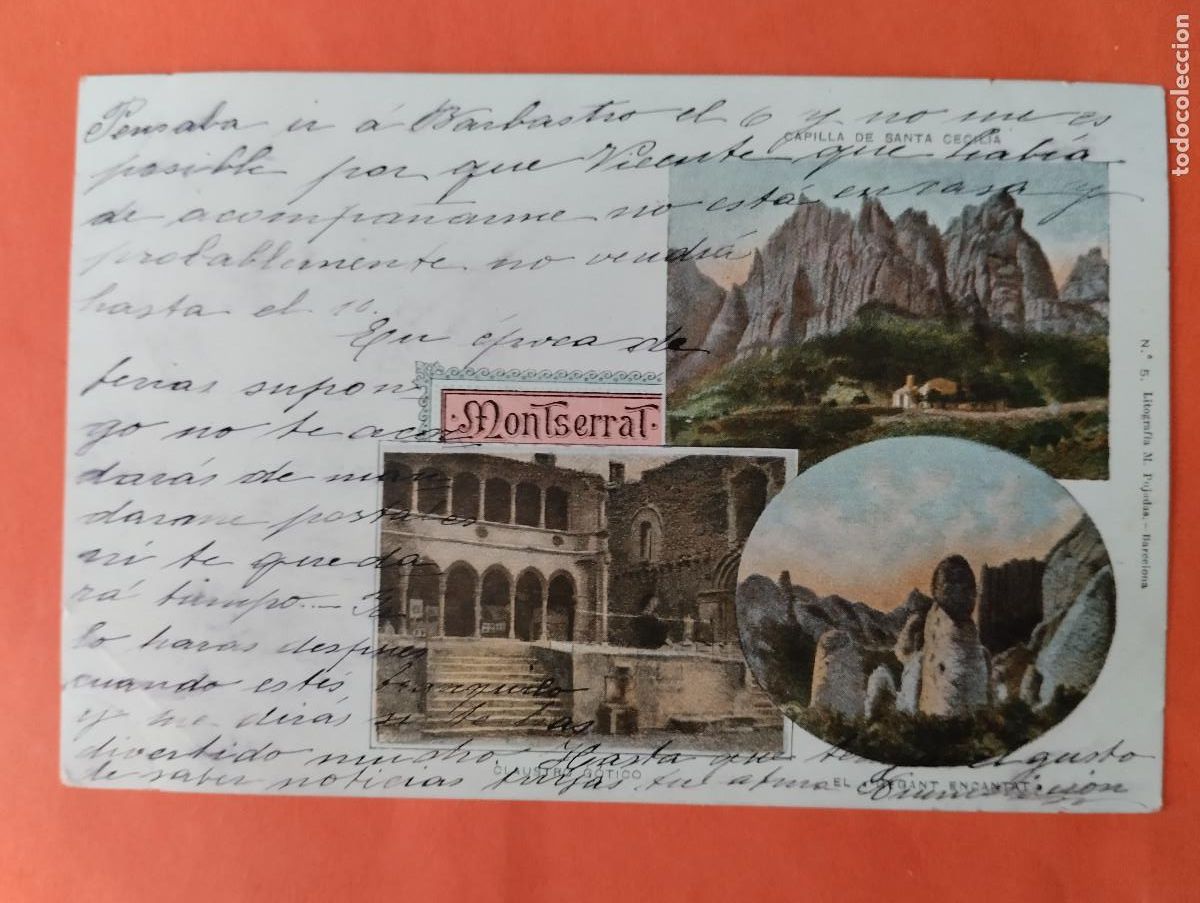 Pensaba ir á Barbastro el 6 y no me es
CAPILLA DE SANTA CECILIA
posible por que Vicente que había
de acompañarme no está en casa y
probablemente no vendrá
hasta el 10.
En época de
ferias supon
go no te acor
darás de man
darme postales
ni te queda
rá tiempo.
lo haras despues
cuando estés tranquilo
y me dirás si te has
divertido mucho. Hasta que tenga el gusto
de saber noticias tuyas, tu atma
Montserrat
CLAUSTRO GÓTICO
EL GEGANT ENCANTAT
N.º 5. Litografía M. Pujadas. - Barcelona
todocoleccion